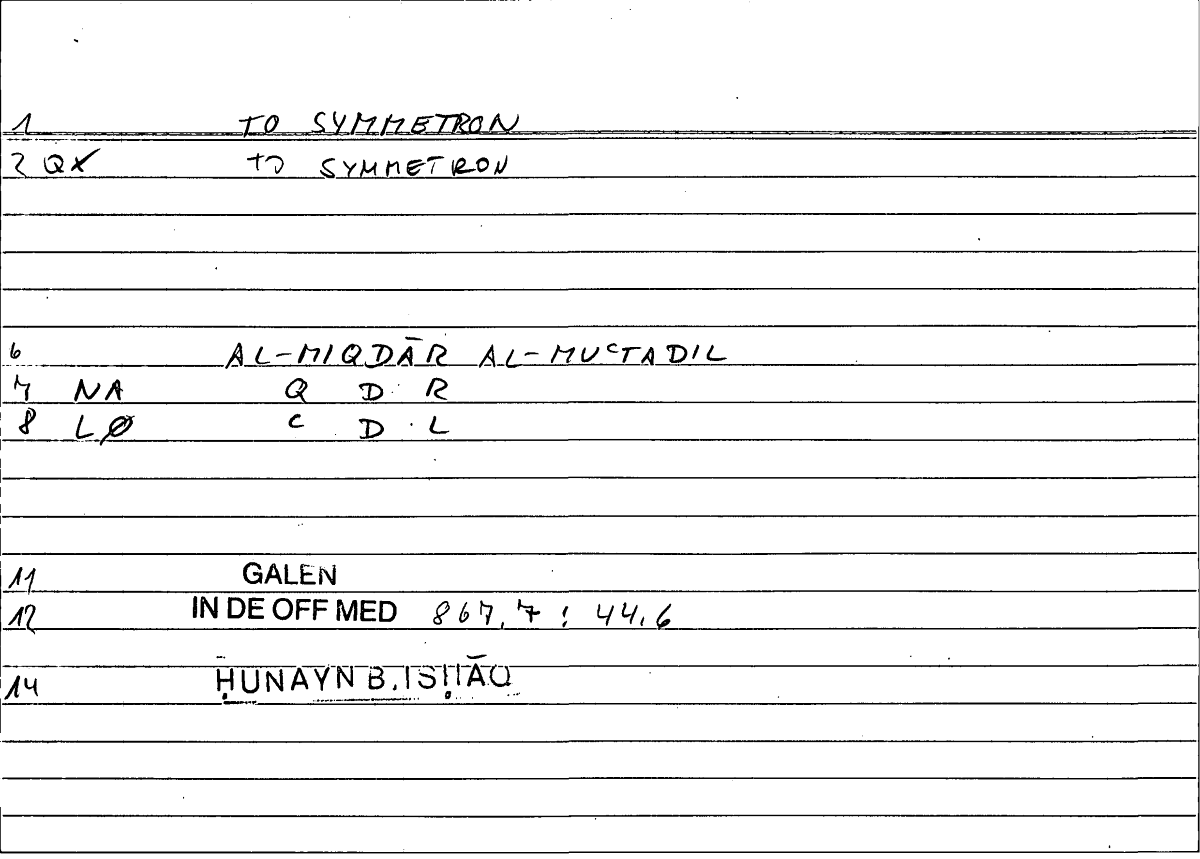 1 TO SYMMETRON
2 QX TO SYMMETRON
6 AL-MIQDĀR AL-MUʿTADIL
7 NA Q D R
8 LØ ʿ D L
11 GALEN
12 IN DE OFF MED 867,7 : 44,6
14 ḤUNAYN B. ISḤĀQ